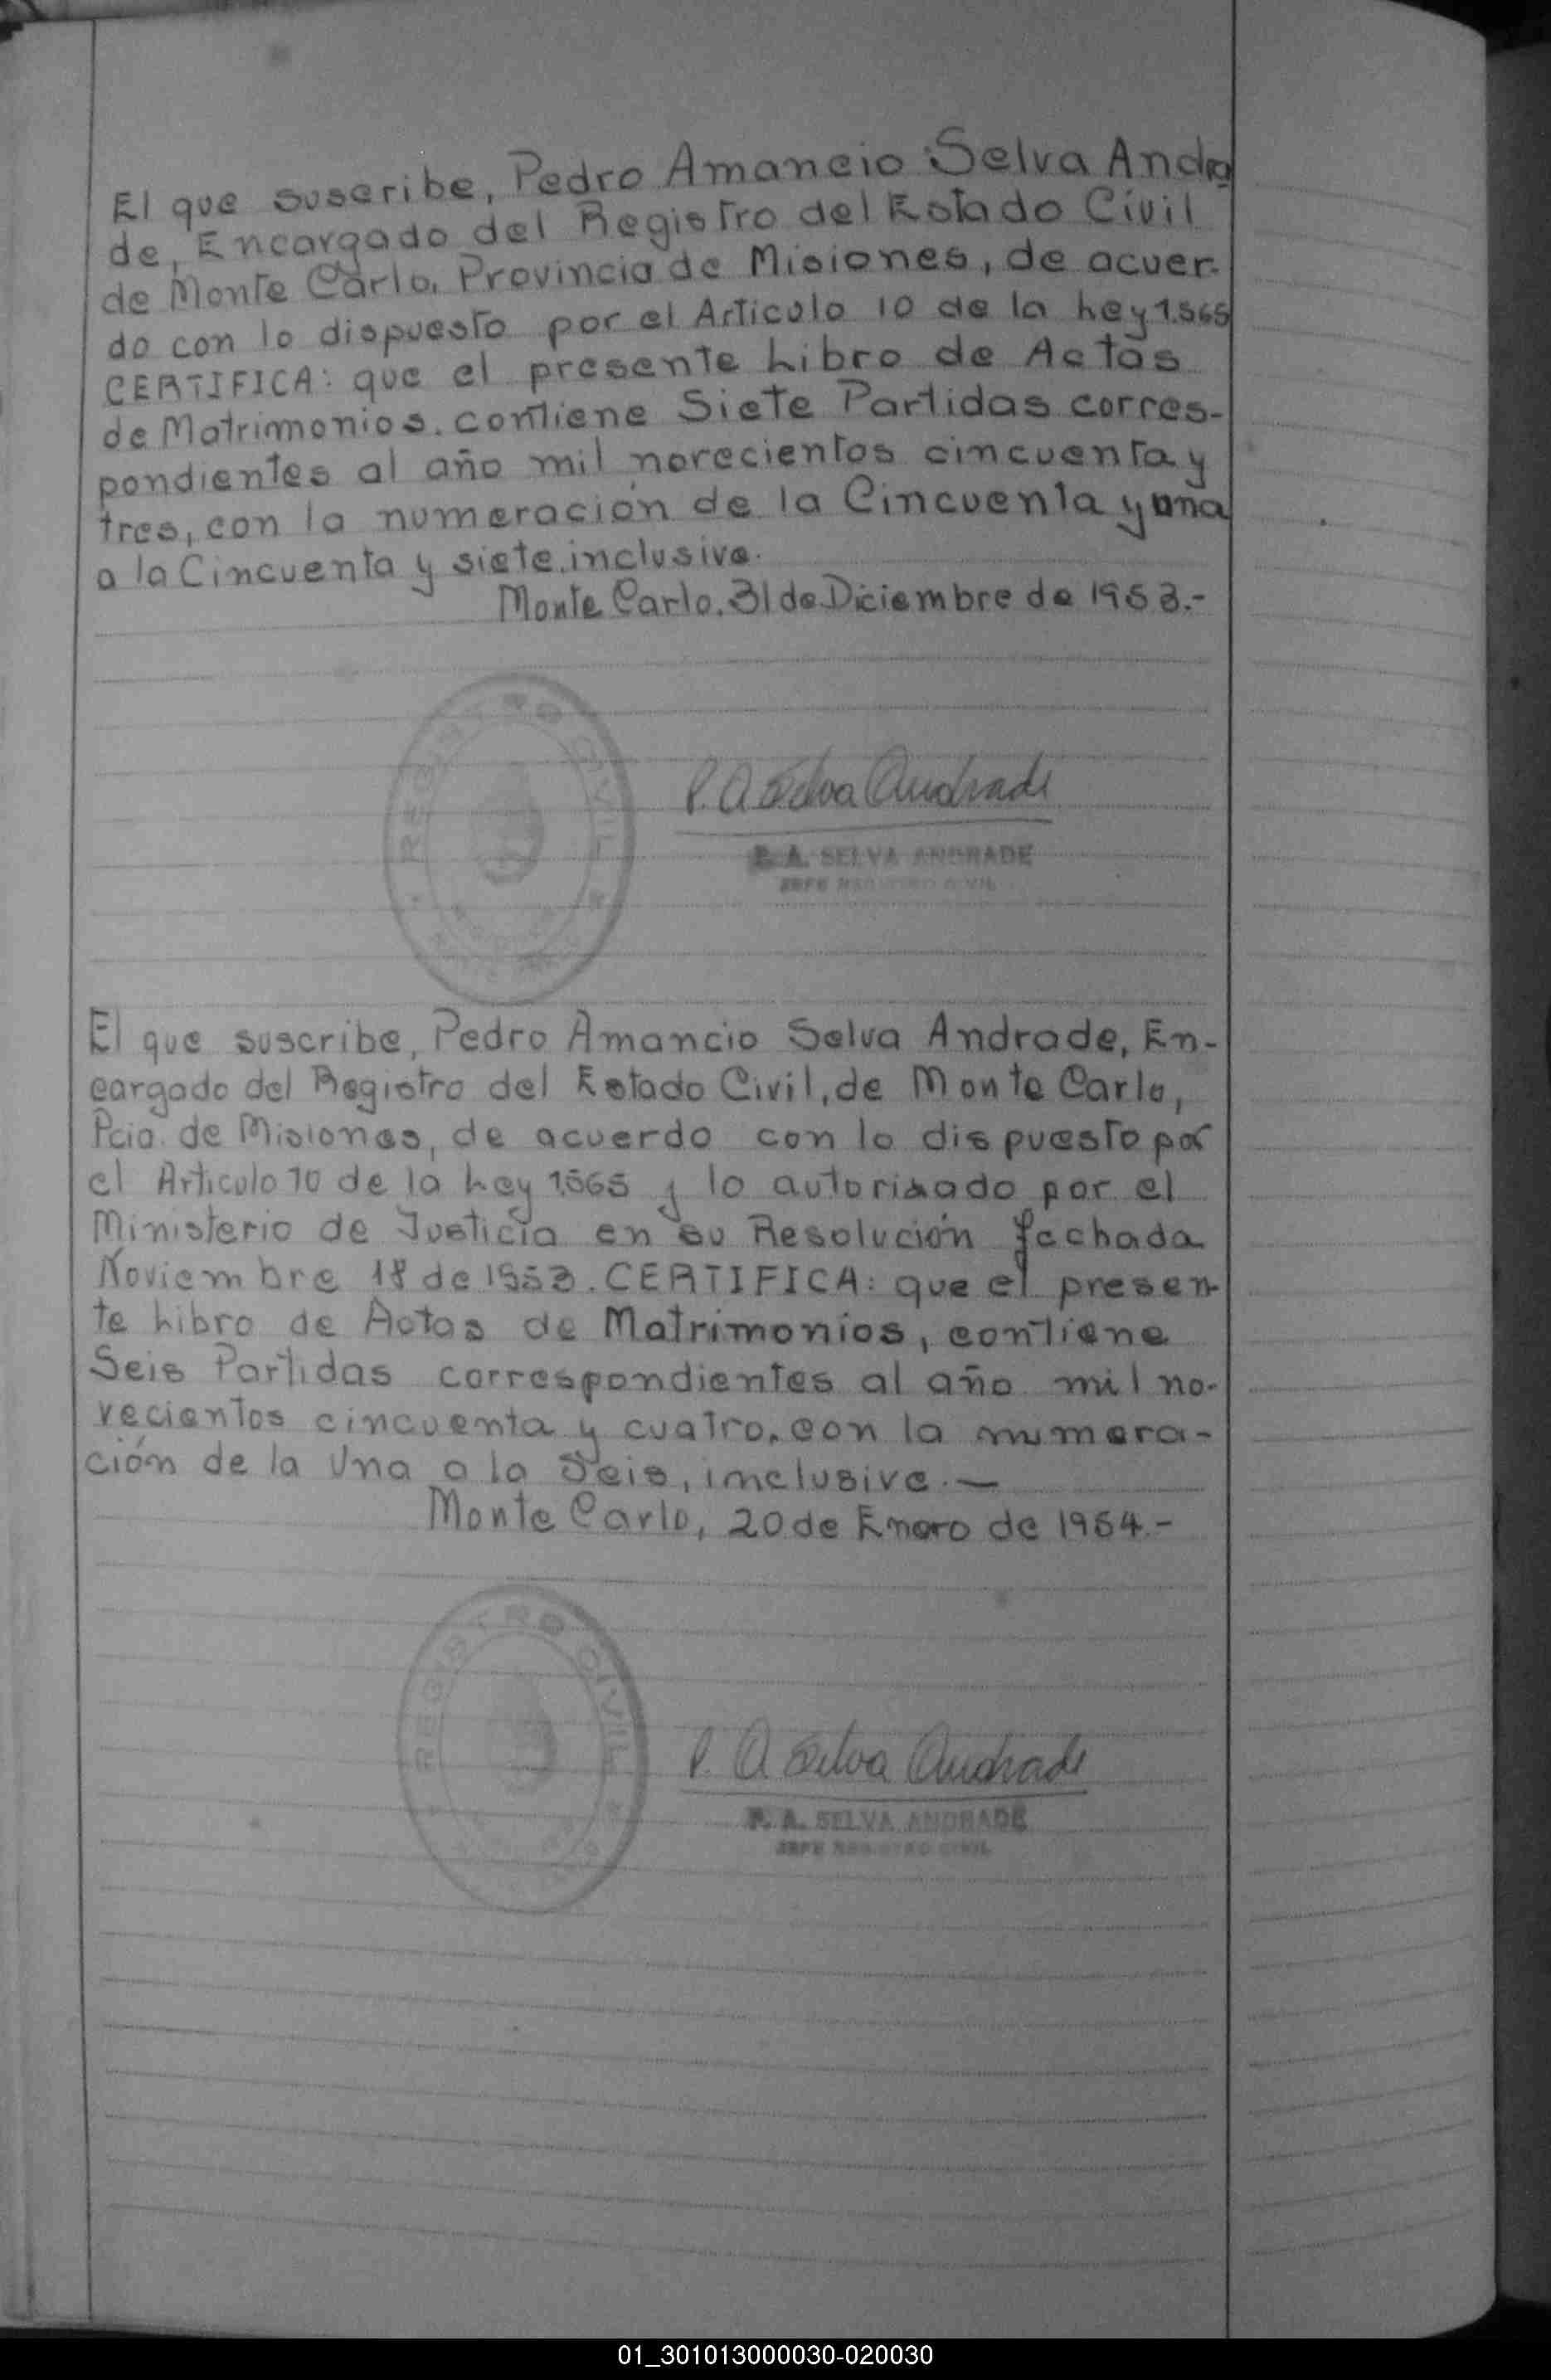 El que suscribe, Pedro Amancio Selva Andra
de, Encargado del Registro del Estado Civil
de Monte Carlo, Provincia de Misiones, de acuer-
do con lo dispuesto por el Articulo 10 de la Ley 1.565
CERTIFICA: que el presente Libro de Actas
de Matrimonios, contiene Siete Partidas corres-
pondientes al año mil novecientos cincuenta y
tres, con la numeración de la Cincuenta y una
a la Cincuenta y siete, inclusive.
Monte Carlo, 31 de Diciembre de 1953.-
REGISTRO CIVIL
P. A Selva Andrade
P. A. SELVA ANDRADE
JEFE REGISTRO CIVIL
El que suscribe, Pedro Amancio Selva Andrade, En-
cargado del Registro del Estado Civil, de Monte Carlo,
Pcia. de Misiones, de acuerdo con lo dispuesto por
el Articulo 10 de la Ley 1.565 y lo autorizado por el
Ministerio de Justicia en su Resolución fechada
Noviembre 18 de 1953. CERTIFICA: que el presen-
te Libro de Actas de Matrimonios, contiene
Seis Partidas correspondientes al año mil no-
vecientos cincuenta y cuatro, con la numera-
ción de la Una a la Seis, inclusive.—
Monte Carlo, 20 de Enero de 1954.-
REGISTRO CIVIL
P. A Selva Andrade
P. A. SELVA ANDRADE
JEFE REGISTRO CIVIL
01_301013000030-020030